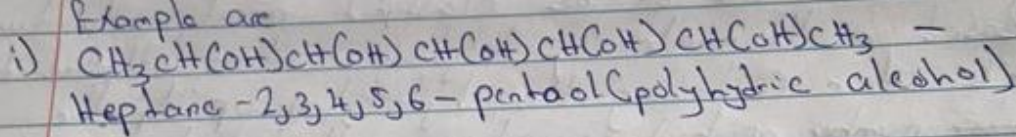 Example are
i) CH3CH(OH)CH(OH) CH(OH) CH(OH) CH(OH)CH3 -
Heptane-2,3,4,5,6- pentaol (polyhydric alcohol)